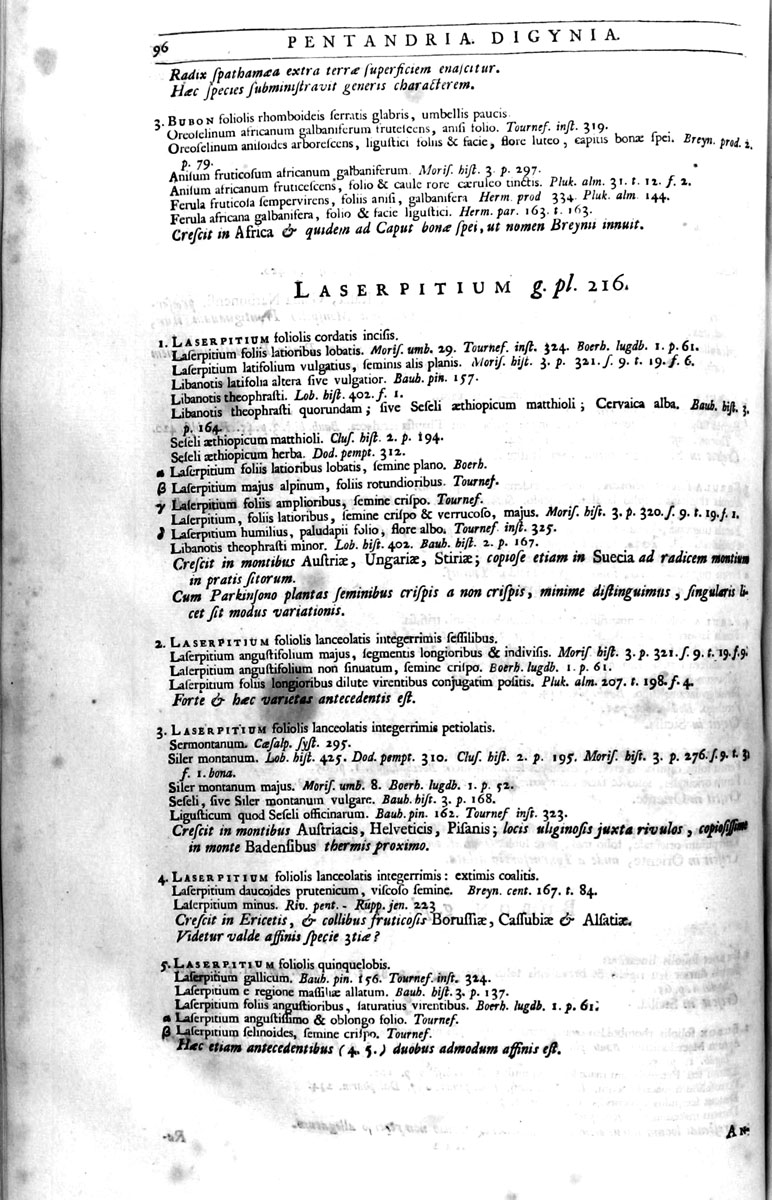 96 PENTANDRIA. DIGYNIA.
Radix ſpathamæa extra terræ ſuperficiem enaſcitur.
Hæc ſpecies ſubminiſtravit generis characterem.
3. BUBON foliolis rhomboideis ſerratis glabris, umbellis paucis
Oreoſelinum africanum galbaniferum fruteſcens, aniſi folio. Tournef. inſt. 319.
Oreoſelinum aniſoides arboreſcens, liguſtici foliis & facie, flore luteo, capitis bonæ ſpei. Breyn. prod. 2.
p. 79.
Aniſum fruticoſum africanum galbaniferum. Moriſ. hiſt. 3. p. 297.
Aniſum africanum fruticeſcens, folio & caule rore cæruleo tinctis. Pluk. alm. 31. t. 12. f. 2.
Ferula fruticoſa ſempervirens, foliis aniſi, galbanifera Herm. prod 334. Pluk. alm. 144.
Ferula africana galbanifera, folio & facie liguſtici. Herm. par. 163. t. 163.
Creſcit in Africa & quidem ad Caput bonæ ſpei, ut nomen Breynii innuit.
LASERPITIUM g. pl. 216.
1. LASERPITIUM foliolis cordatis inciſis.
Laſerpitium foliis latioribus lobatis. Moriſ. umb. 29. Tournef. inſt. 324. Boerh. lugdb. 1. p. 61.
Laſerpitium latifolium vulgatius, ſeminis alis planis. Moriſ. hiſt. 3. p. 321. ſ. 9. t. 19. f. 6.
Libanotis latifolia altera ſive vulgatior. Bauh. pin. 157.
Libanotis theophraſti. Lob. hiſt. 402. f. 1.
Libanotis theophraſti quorundam; ſive Seſeli æthiopicum matthioli; Cervaica alba. Bauh. hiſt. 3.
p. 164.
Seſeli æthiopicum matthioli. Cluſ. hiſt. 2. p. 194.
Seſeli æthiopicum herba. Dod. pempt. 312.
α Laſerpitium foliis latioribus lobatis, ſemine plano. Boerh.
β Laſerpitium majus alpinum, foliis rotundioribus. Tournef.
γ Laſerpitium foliis amplioribus, ſemine criſpo. Tournef.
Laſerpitium, foliis latioribus, ſemine criſpo & verrucoſo, majus. Moriſ. hiſt. 3. p. 320. ſ. 9. t. 19. f. 1.
δ Laſerpitium humilius, paludapii folio, flore albo. Tournef inſt. 325.
Libanotis theophraſti minor. Lob. hiſt. 402. Bauh. hiſt. 2. p. 167.
Creſcit in montibus Auſtriæ, Ungariæ, Stiriæ; copioſe etiam in Suecia ad radicem montium
in pratis ſitorum.
Cum Parkinſono plantas ſeminibus criſpis a non criſpis, minime diſtinguimus, ſingularis li-
cet ſit modus variationis.
2. LASERPITIUM foliolis lanceolatis integerrimis ſeſſilibus.
Laſerpitium anguſtifolium majus, ſegmentis longioribus & indiviſis. Moriſ hiſt. 3. p. 321. ſ. 9. t. 19. f. 9.
Laſerpitium anguſtifolium non ſinuatum, ſemine criſpo. Boerh. lugdb. 1. p. 61.
Laſerpitium foliis longioribus dilute virentibus conjugatim poſitis. Pluk. alm. 207. t. 198. f. 4.
Forte & hæc varietas antecedentis eſt.
3. LASERPITIUM foliolis lanceolatis integerrimis petiolatis.
Sermontanum. Cæſalp. ſyſt. 295.
Siler montanum. Lob. hiſt. 425. Dod. pempt. 310. Cluſ. hiſt. 2. p. 195. Moriſ. hiſt. 3. p. 276. ſ. 9. t. 3.
f. 1. bona.
Siler montanum majus. Moriſ. umb. 8. Boerh. lugdb. 1. p. 52.
Seſeli, ſive Siler montanum vulgare. Bauh. hiſt. 3. p. 168.
Liguſticum quod Seſeli officinarum. Bauh. pin. 162. Tournef inſt. 323.
Creſcit in montibus Auſtriacis, Helveticis, Piſanis; locis uliginoſis juxta rivulos, copioſiſſime
in monte Badenſibus thermis proximo.
4. LASERPITIUM foliolis lanceolatis integerrimis: extimis coalitis.
Laſerpitium daucoides prutenicum, viſcoſo ſemine. Breyn. cent. 167. t. 84.
Laſerpitium minus. Riv. pent. - Rupp. jen. 223
Creſcit in Ericetis, & collibus fruticoſis Boruſſiæ, Caſſubiæ & Alſatiæ.
Videtur valde affinis ſpecie 3tiæ?
5. LASERPITIUM foliolis quinquelobis.
Laſerpitium gallicum. Bauh. pin. 156. Tournef. inſt. 324.
Laſerpitium e regione maſſiliæ allatum. Bauh. hiſt. 3. p. 137.
Laſerpitium foliis anguſtioribus, ſaturatius virentibus. Boerh. lugdb. 1. p. 61.
α Laſerpitium anguſtiſſimo & oblongo folio. Tournef.
β Laſerpitium ſelinoides, ſemine criſpo. Tournef.
Hæc etiam antecedentibus (4. 5.) duobus admodum affinis eſt.